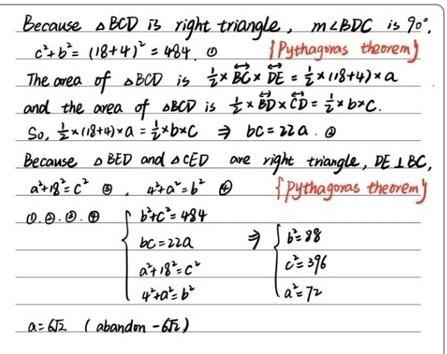 Because △BCD is right triangle, m∠BDC is 90°,
c²+b² = (18+4)² = 484. ① {Pythagoras theorem}
The area of △BCD is ½×B͞C×D͞E = ½×(18+4)×a
and the area of △BCD is ½×B͞D×C͞D = ½×b×c.
So, ½×(18+4)×a = ½×b×c ⇒ bc = 22a. ②
Because △BED and △CED are right triangle, DE⊥BC,
a²+18² = c² ③, 4²+a² = b² ④ {Pythagoras theorem}
①.②.③.④ { b²+c² = 484 ⇒ { b² = 88
bc = 22a c² = 396
a²+18² = c² a² = 72
4²+a² = b²
a = 6√2 (abandon -6√2)